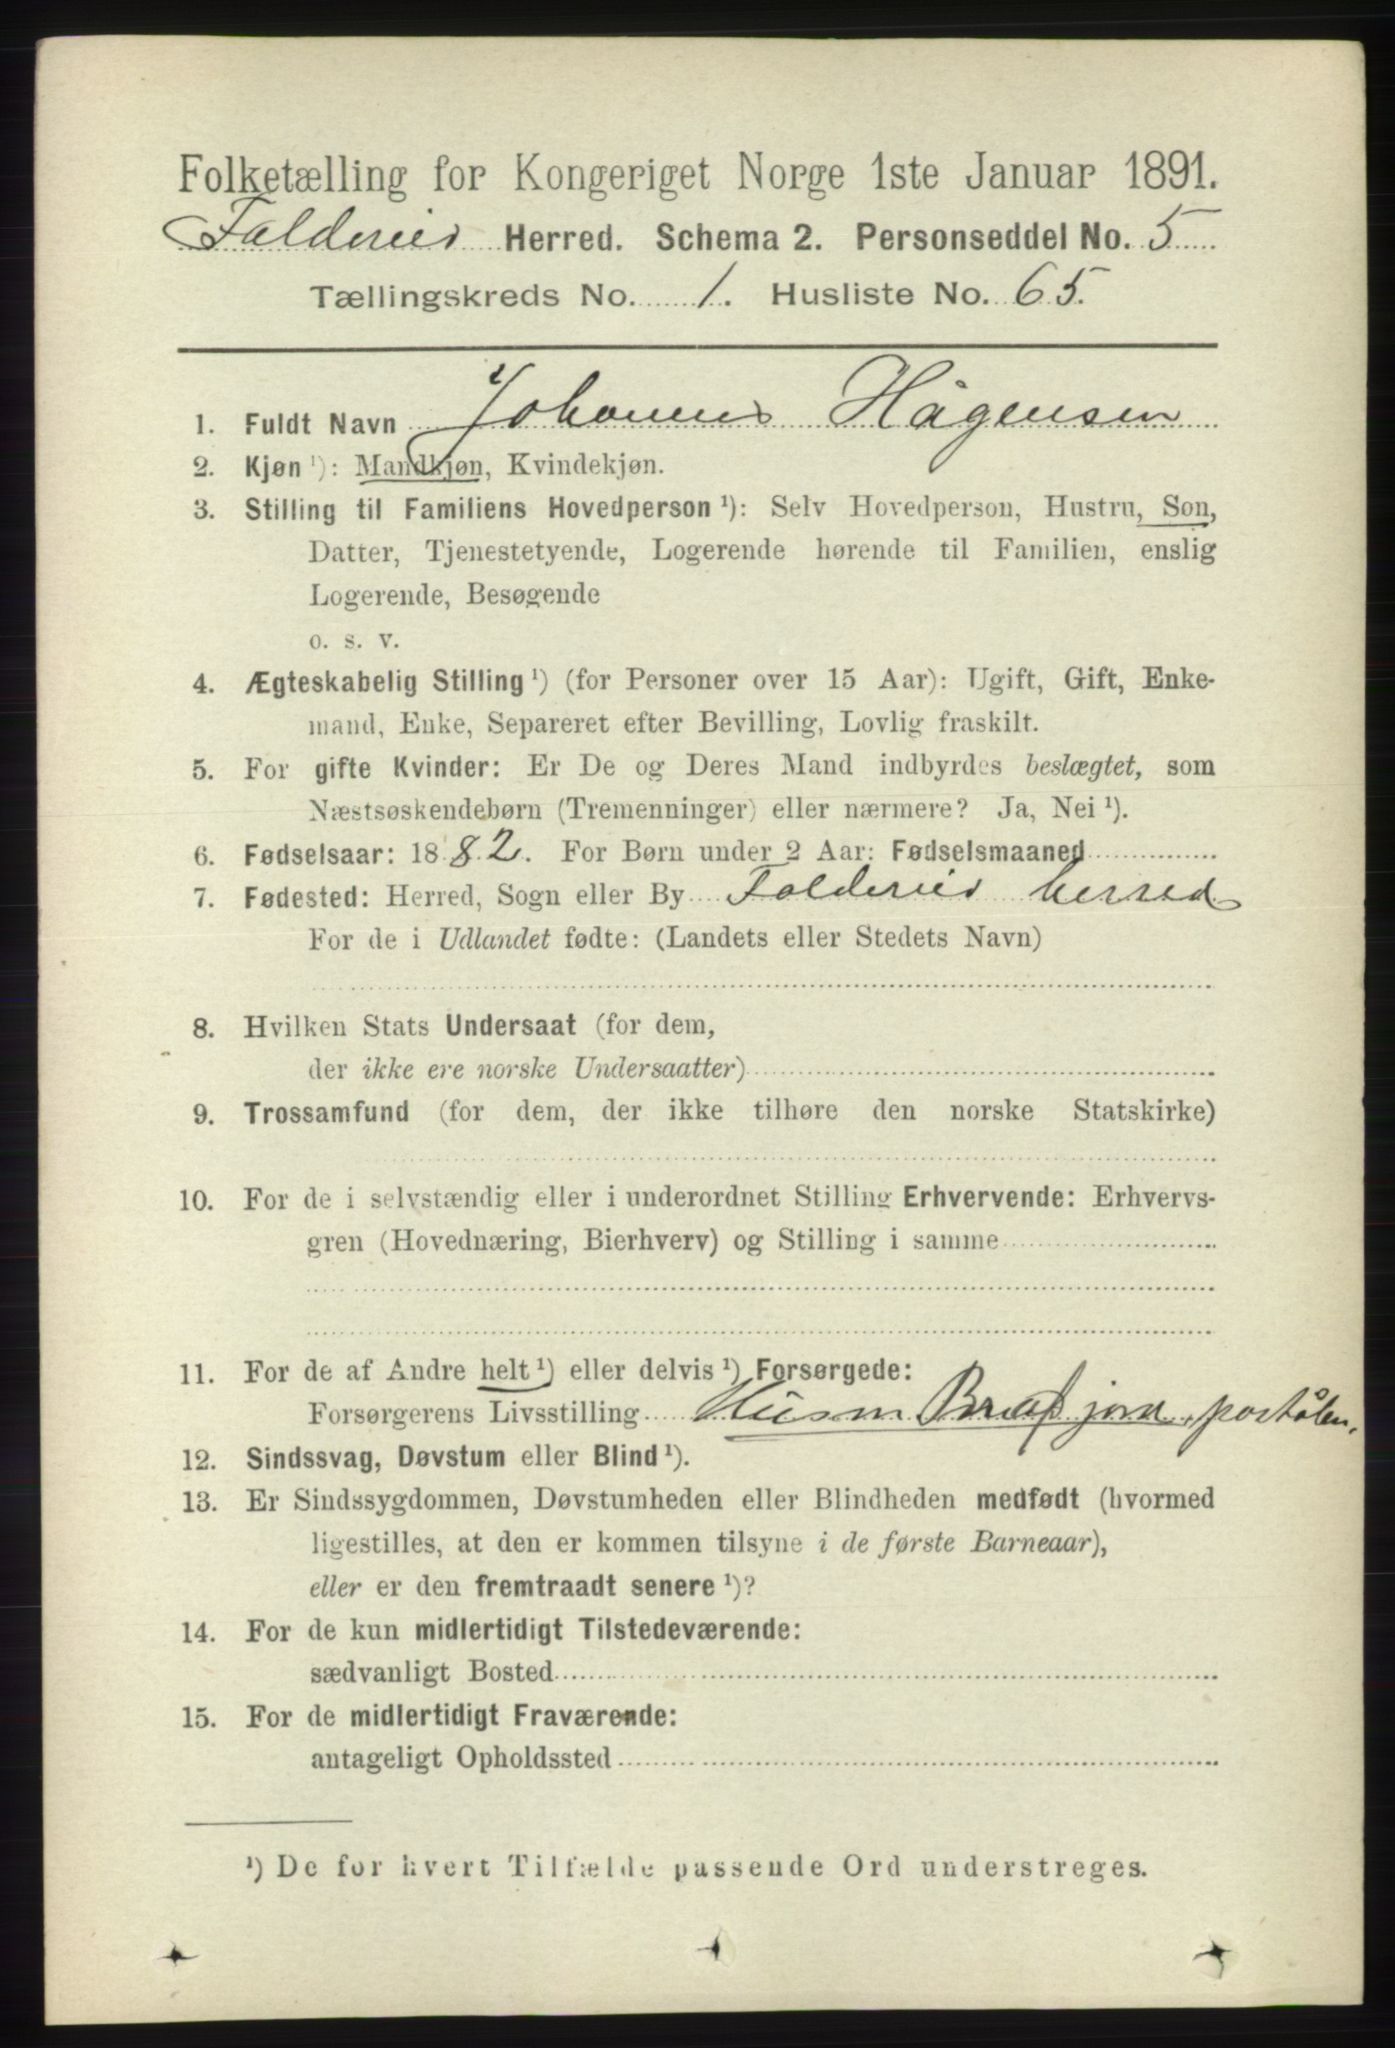 Folketælling for Kongeriget Norge 1ste Januar 1891.
Foldereid Herred. Schema 2. Personseddel No. 5
Tællingskreds No. 1. Husliste No. 65.
1. Fuldt Navn Johannes Hågensen
2. Kjøn ¹): Mandkjøn, Kvindekjøn.
3. Stilling til Familiens Hovedperson ¹): Selv Hovedperson, Hustru, Søn,
Datter, Tjenestetyende, Logerende hørende til Familien, enslig
Logerende, Besøgende
o. s. v.
4. Ægteskabelig Stilling ¹) (for Personer over 15 Aar): Ugift, Gift, Enke-
mand, Enke, Separeret efter Bevilling, Lovlig fraskilt.
5. For gifte Kvinder: Er De og Deres Mand indbyrdes beslægtet, som
Næstsøskendebørn (Tremenninger) eller nærmere? Ja, Nei ¹).
6. Fødselsaar: 1882. For Børn under 2 Aar: Fødselsmaaned
7. Fødested: Herred, Sogn eller By Foldereid herred
For de i Udlandet fødte: (Landets eller Stedets Navn)
8. Hvilken Stats Undersaat (for dem,
der ikke ere norske Undersaatter)
9. Trossamfund (for dem, der ikke tilhøre den norske Statskirke)
10. For de i selvstændig eller i underordnet Stilling Erhvervende: Erhvervs-
gren (Hovednæring, Bierhverv) og Stilling i samme
11. For de af Andre helt ¹) eller delvis ¹) Forsørgede:
Forsørgerens Livsstilling Husm jord,
12. Sindssvag, Døvstum eller Blind ¹).
13. Er Sindssygdommen, Døvstumheden eller Blindheden medfødt (hvormed
ligestilles, at den er kommen tilsyne i de første Barneaar),
eller er den fremtraadt senere ¹)?
14. For de kun midlertidigt Tilstedeværende:
sædvanligt Bosted
15. For de midlertidigt Fraværende:
antageligt Opholdssted
¹) De for hvert Tilfælde passende Ord understreges.